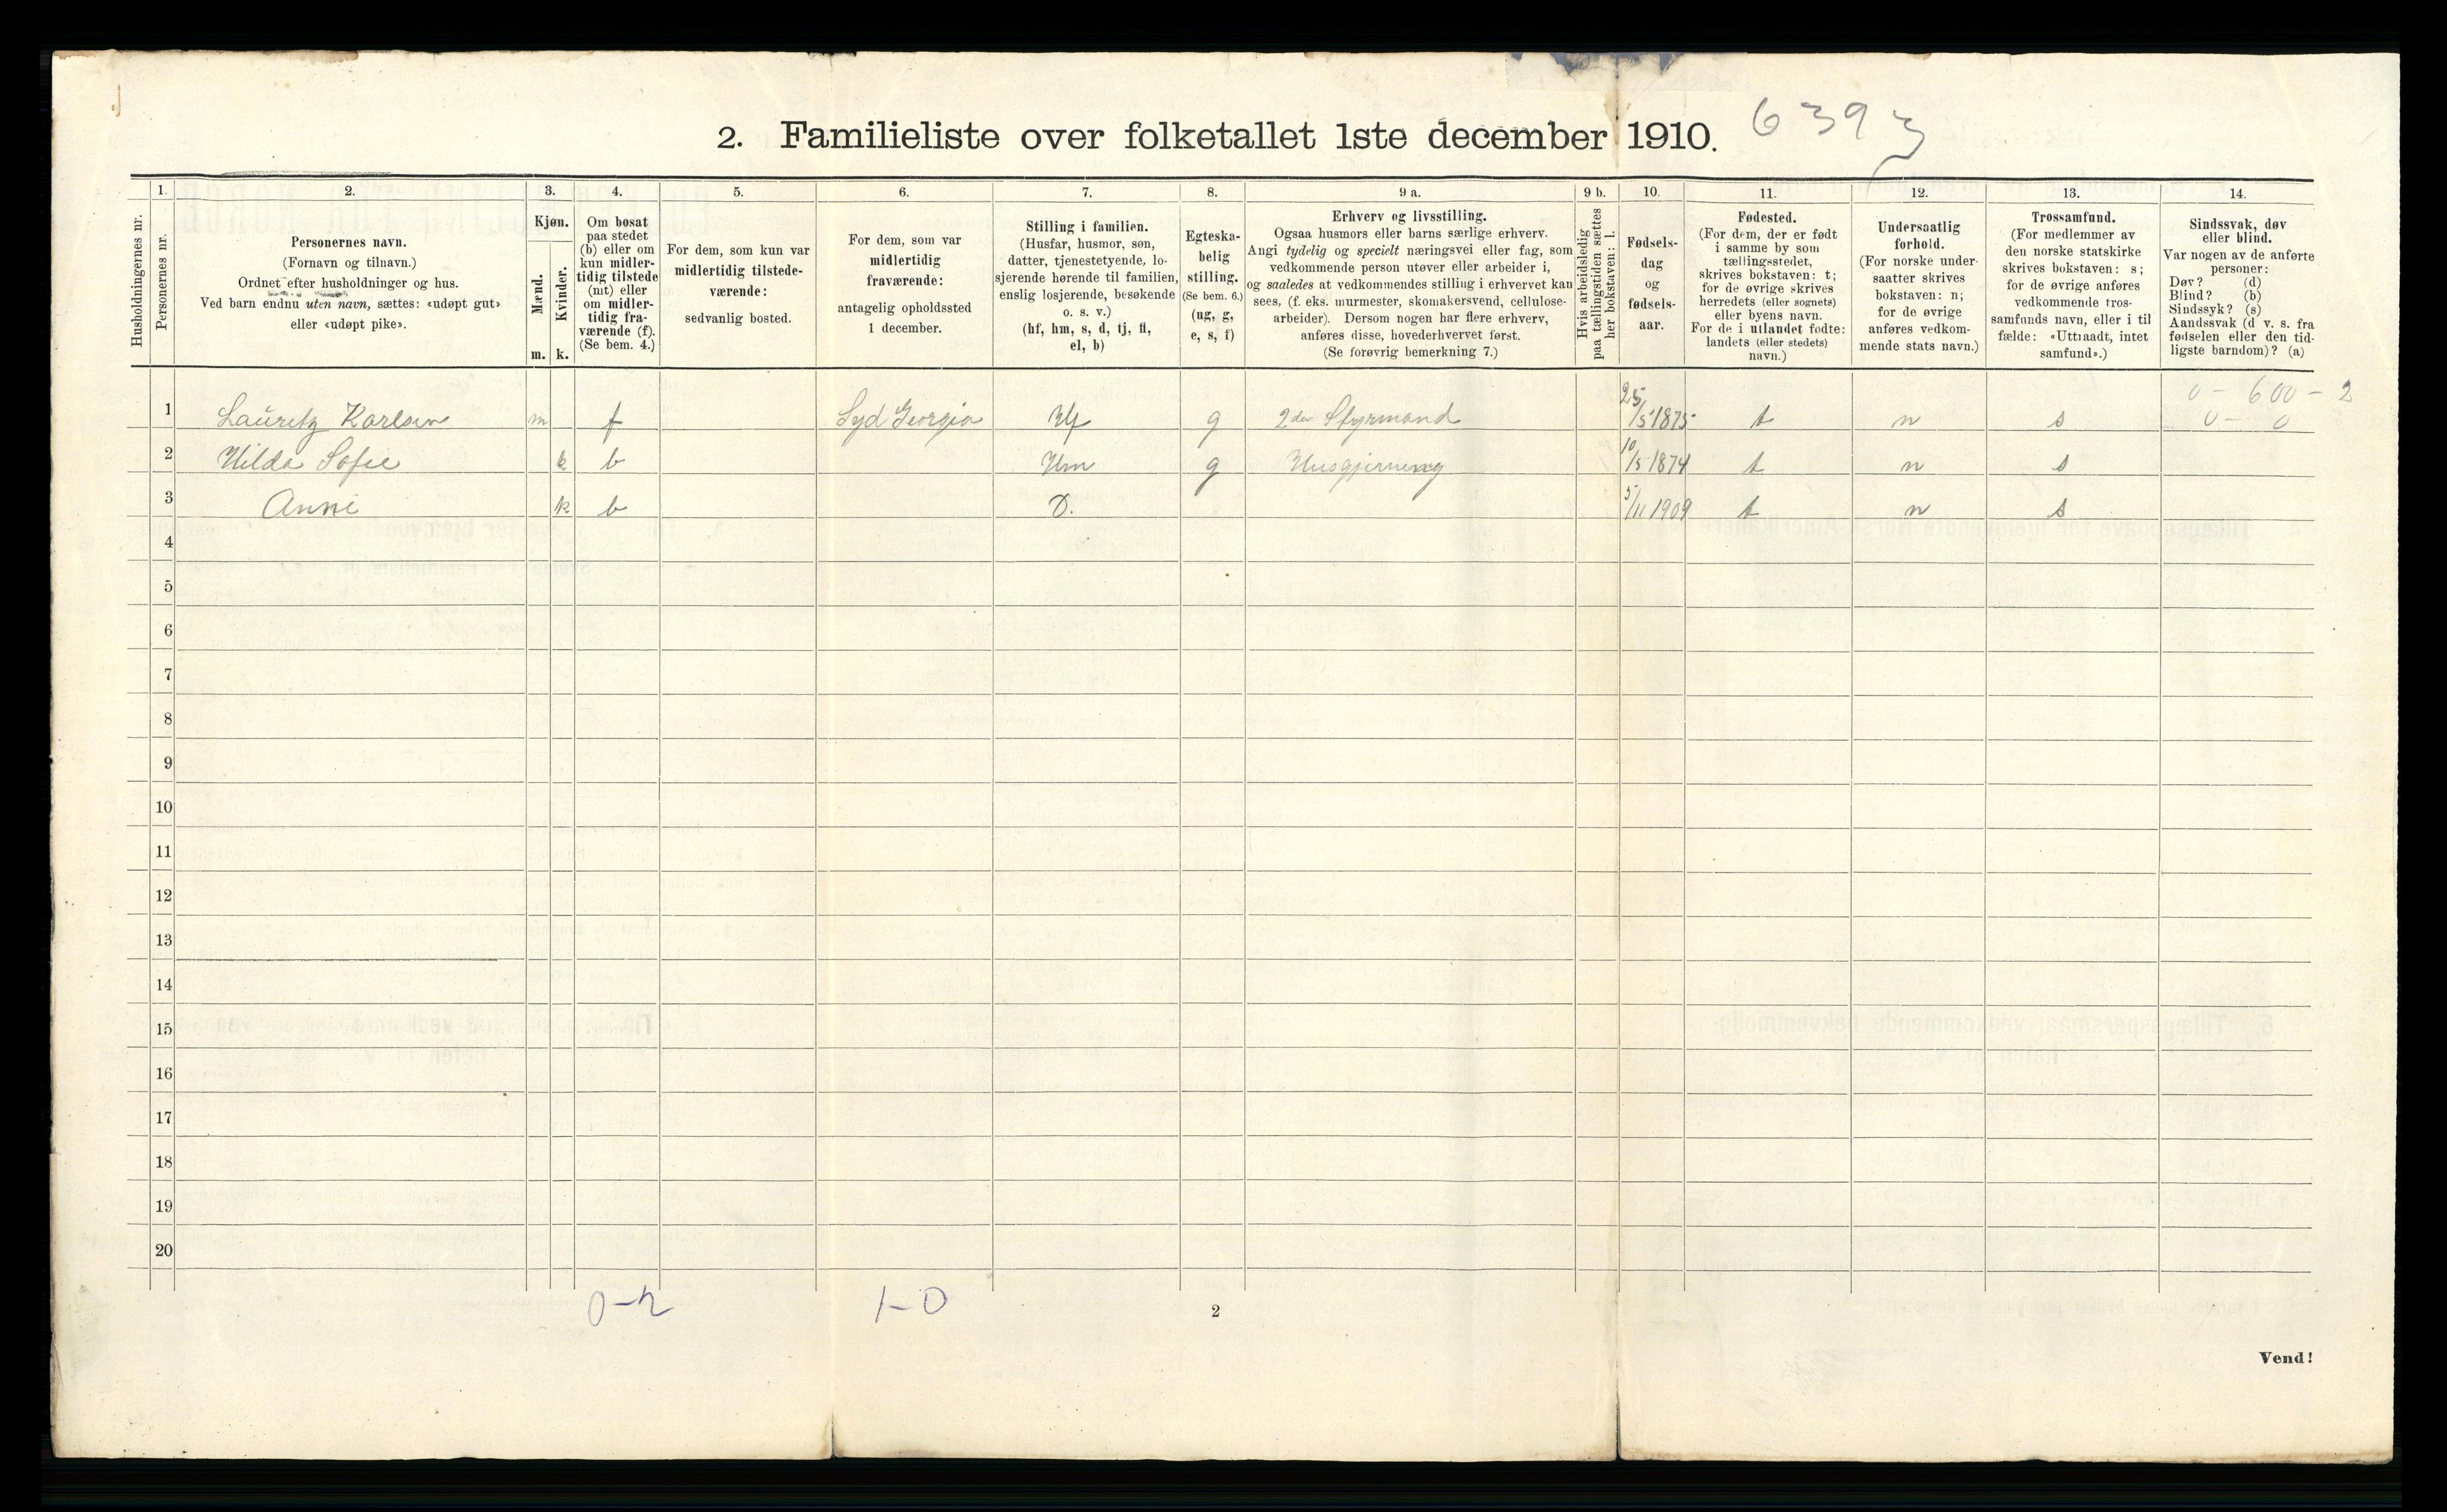 2. Familieliste over folketallet 1ste december 1910. 6393
Husholdningernes nr.
1.
Personernes nr.
2.
Personernes navn.
(Fornavn og tilnavn.)
Ordnet efter husholdninger og hus.
Ved barn endnu uten navn, sættes: «udøpt gut»
eller «udøpt pike».
3.
Kjøn.
Mænd.
m.
Kvinder.
k.
4.
Om bosat
paa stedet
(b) eller om
kun midler-
tidig tilstede
(mt) eller
om midler-
tidig fra-
værende (f).
(Se bem. 4.)
5.
For dem, som kun var
midlertidig tilstede-
værende:
sedvanlig bosted.
6.
For dem, som var
midlertidig
fraværende:
antagelig opholdssted
1 december.
7.
Stilling i familien.
(Husfar, husmor, søn,
datter, tjenestetyende, lo-
sjerende hørende til familien,
enslig losjerende, besøkende
o. s. v.)
(hf, hm, s, d, tj, fl,
el, b)
8.
Egteska-
belig
stilling.
(Se bem. 6.)
(ug, g,
e, s, f)
9 a.
Erhverv og livsstilling.
Ogsaa husmors eller barns særlige erhverv.
Angi tydelig og specielt næringsvei eller fag, som
vedkommende person utøver eller arbeider i,
og saaledes at vedkommendes stilling i erhvervet kan
sees, (f. eks. murmester, skomakersvend, cellulose-
arbeider). Dersom nogen har flere erhverv,
anføres disse, hovederhvervet først.
(Se forøvrig bemerkning 7.)
9 b.
Hvis arbeidsledig
paa tællingstiden sættes
her bokstaven: l.
10.
Fødsels-
dag
og
fødsels-
aar.
11.
Fødested.
(For dem, der er født
i samme by som
tællingsstedet,
skrives bokstaven: t;
for de øvrige skrives
herredets (eller sognets)
eller byens navn.
For de i utlandet fødte:
landets (eller stedets)
navn.)
12.
Undersaatlig
forhold.
(For norske under-
saatter skrives
bokstaven: n;
for de øvrige
anføres vedkom-
mende stats navn.)
13.
Trossamfund.
(For medlemmer av
den norske statskirke
skrives bokstaven: s;
for de øvrige anføres
vedkommende tros-
samfunds navn, eller i til
fælde: «Uttraadt, intet
samfund».)
14.
Sindssvak, døv
eller blind.
Var nogen av de anførte
personer:
Døv? (d)
Blind? (b)
Sindssyk? (s)
Aandssvak (d v. s. fra
fødselen eller den tid-
ligste barndom)? (a)
0 - 600 - 2
1 Lauritz Karlsen m f Syd Georgia Hf g 2den Styrmand 25/5 1875 t n s 0 - 0
2 Hilda Sofie k b Hm g Husgjerning 10/5 1874 t n s
3 Anni k b D. 5/11 1909 t n s
4
5
6
7
8
9
10
11
12
13
14
15
16
17
18
19
20
0-2 1-0
2
Vend!